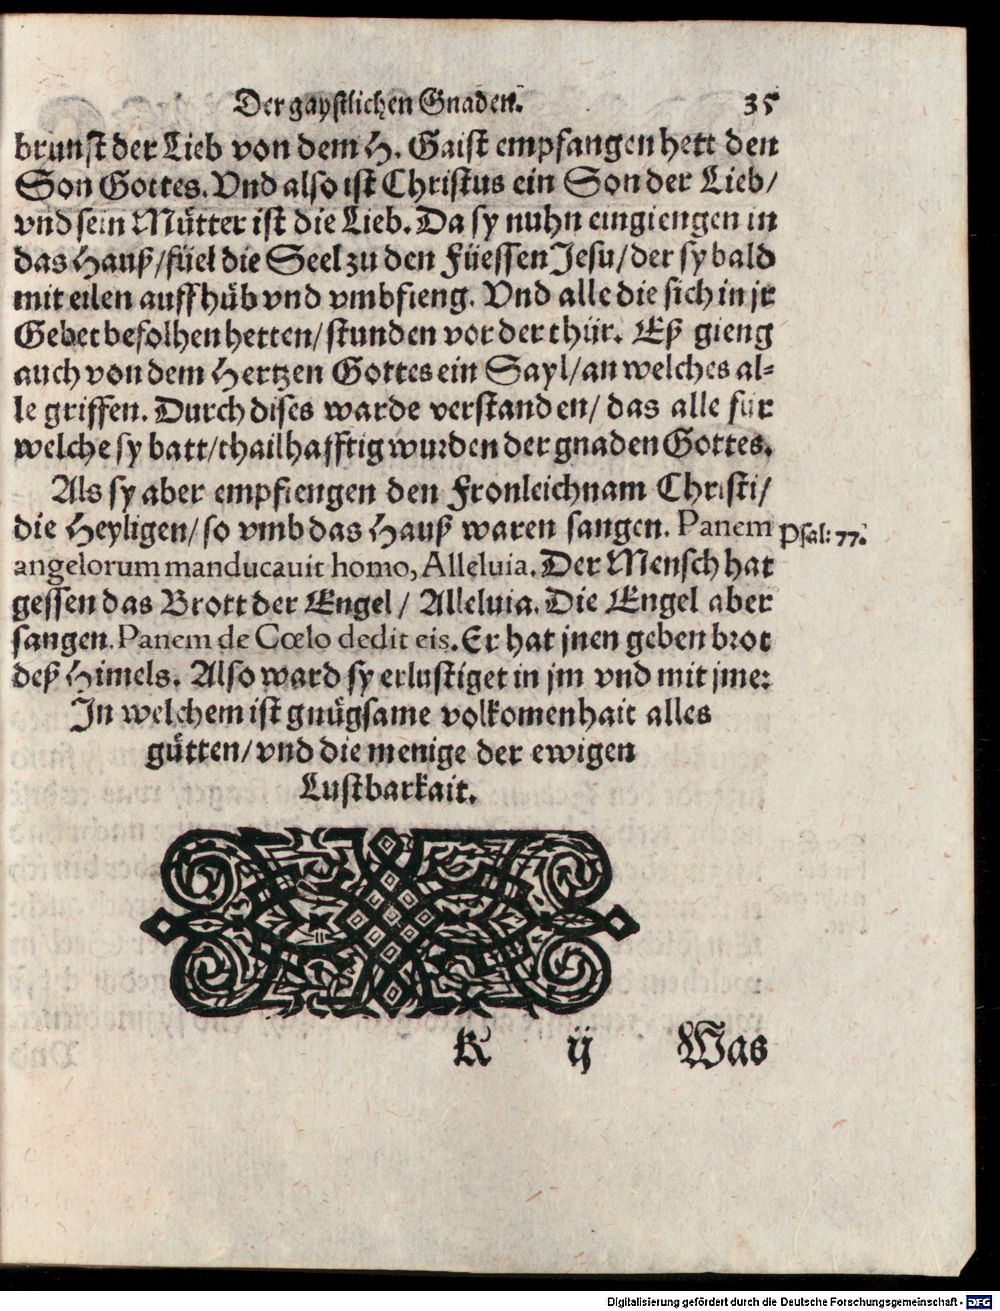 Der gaystlichen Gnaden. 35
brunst der Lieb von dem H. Gaist empfangen hett den
Son Gottes. Vnd also ist Christus ein Son der Lieb/
vnd sein Muͤtter ist die Lieb. Da sy nuhn eingiengen in
das Hauß/ fuͤel die Seel zu den Fuͤessen Jesu/ der sy bald
mit eilen auffhuͤb vnd vmbfieng. Vnd alle die sich in jr
Gebet befolhen hetten/ stunden vor der thuͤr. Eß gieng
auch von dem Hertzen Gottes ein Sayl/ an welches al-
le griffen. Durch dises warde verstanden/ das alle fuͤr
welche sy batt/ thailhafftig wurden der gnaden Gottes.
Als sy aber empfiengen den Fronleichnam Christi/
die Heyligen/ so vmb das Hauß waren sangen. Panem
Psal: 77.
angelorum manducauit homo, Alleluia. Der Mensch hat
gessen das Brott der Engel/ Alleluia. Die Engel aber
sangen. Panem de Cœlo dedit eis. Er hat jnen geben brot
deß Himels. Also ward sy erlustiget in jm vnd mit jme:
In welchem ist gnuͤgsame volkomenhait alles
guͤtten/ vnd die menige der ewigen
Lustbarkait.
K ij Was
Digitalisierung gefördert durch die Deutsche Forschungsgemeinschaft - DFG